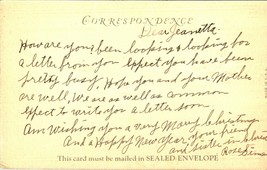 CORRESPONDENCE
Dear Jeanette
How are you, been looking & looking for
a letter from you expect you have been
pretty busy. Hope you and your Mother
are well, We are as well as common
Expect to write you a letter soon.
Am Wishing you a very Merry Christmas
and a Happy New year, your friend
and sister in
This card must be mailed in SEALED ENVELOPE